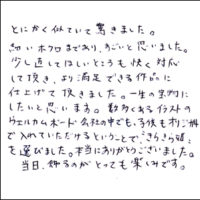 とにかく似ていて驚きました。
細いホクロまであり、すごいと思いました。
少し直してほしいところも快く対応
して頂き、より満足できる作品に
仕上げて頂きました。一生の宝物に
したいと思います。数多くあるイラストの
ウェルカムボード会社の中でも、子供も
で入れていただけるということで、きらきら
を選びました。本当にありがとうございました。
当日、飾るのがとっても楽しみです。